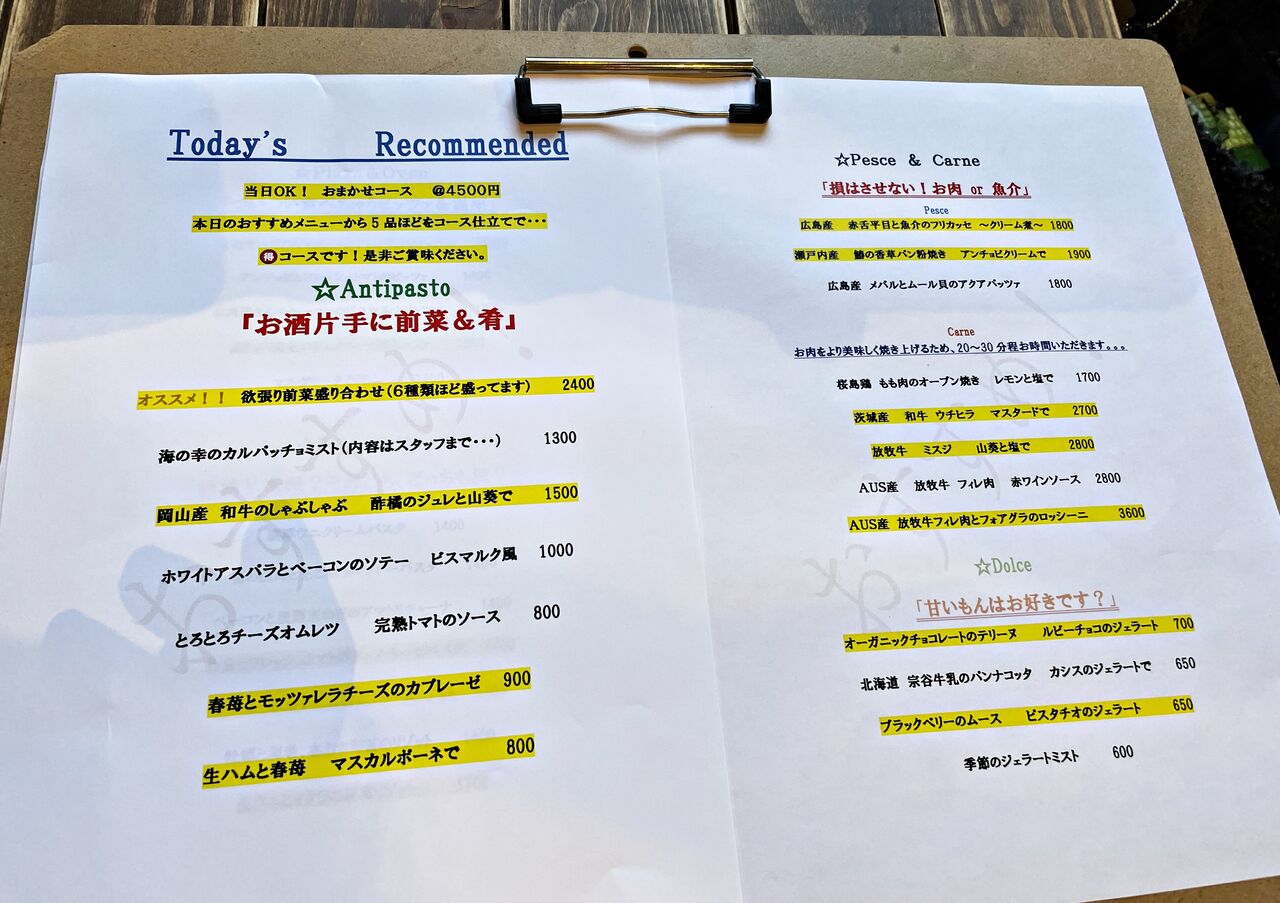 Today's Recommended
当日OK！ おまかせコース ＠4500円
本日のおすすめメニューから5品ほどをコース仕立てで・・・
得コースです！是非ご賞味ください。
☆Antipasto
『お酒片手に前菜＆肴』
オススメ！！ 欲張り前菜盛り合わせ（6種類ほど盛ってます） 2400
海の幸のカルパッチョミスト（内容はスタッフまで・・・） 1300
岡山産 和牛のしゃぶしゃぶ 酢橘のジュレと山葵で 1500
ホワイトアスパラとベーコンのソテー ビスマルク風 1000
とろとろチーズオムレツ 完熟トマトのソース 800
春苺とモッツァレラチーズのカプレーゼ 900
生ハムと春苺 マスカルポーネで 800
☆Pesce & Carne
「損はさせない！お肉 or 魚介」
Pesce
広島産 赤舌平目と魚介のフリカッセ ～クリーム煮～ 1800
瀬戸内産 鰆の香草パン粉焼き アンチョビクリームで 1900
広島産 メバルとムール貝のアクアパッツァ 1800
Carne
お肉をより美味しく焼き上げるため、20～30分程お時間いただきます。。。
桜島鶏 もも肉のオーブン焼き レモンと塩で 1700
茨城産 和牛 ウチヒラ マスタードで 2700
放牧牛 ミスジ 山葵と塩で 2800
AUS産 放牧牛 フィレ肉 赤ワインソース 2800
AUS産 放牧牛フィレ肉とフォアグラのロッシーニ 3600
☆Dolce
「甘いもんはお好きです？」
オーガニックチョコレートのテリーヌ ルビーチョコのジェラート 700
北海道 宗谷牛乳のパンナコッタ カシスのジェラートで 650
ブラックベリーのムース ピスタチオのジェラート 650
季節のジェラートミスト 600